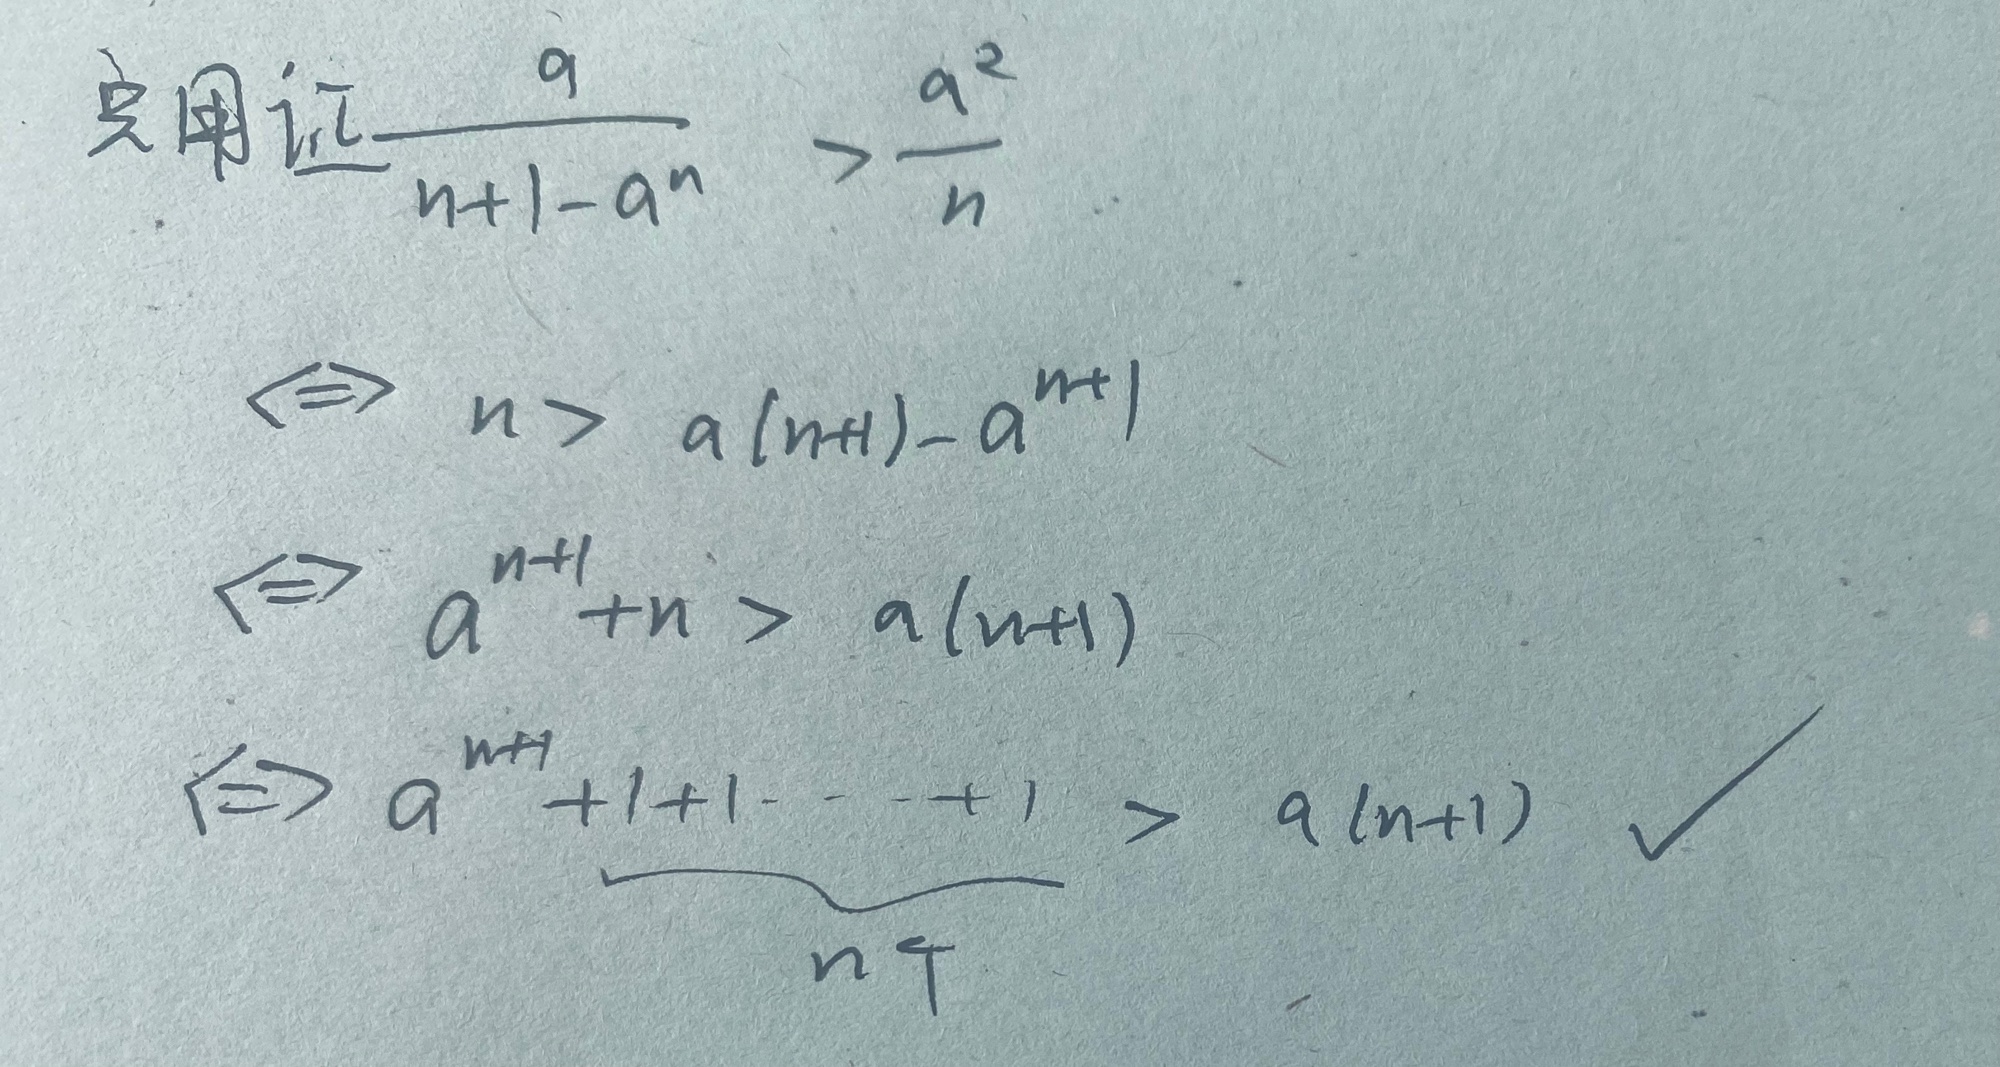 只用证 a/(n+1-aⁿ) > a²/n
<=> n > a(n+1)-aⁿ⁺¹
<=> aⁿ⁺¹+n > a(n+1)
<=> aⁿ⁺¹+1+1----+1 > a(n+1) ✓
n个